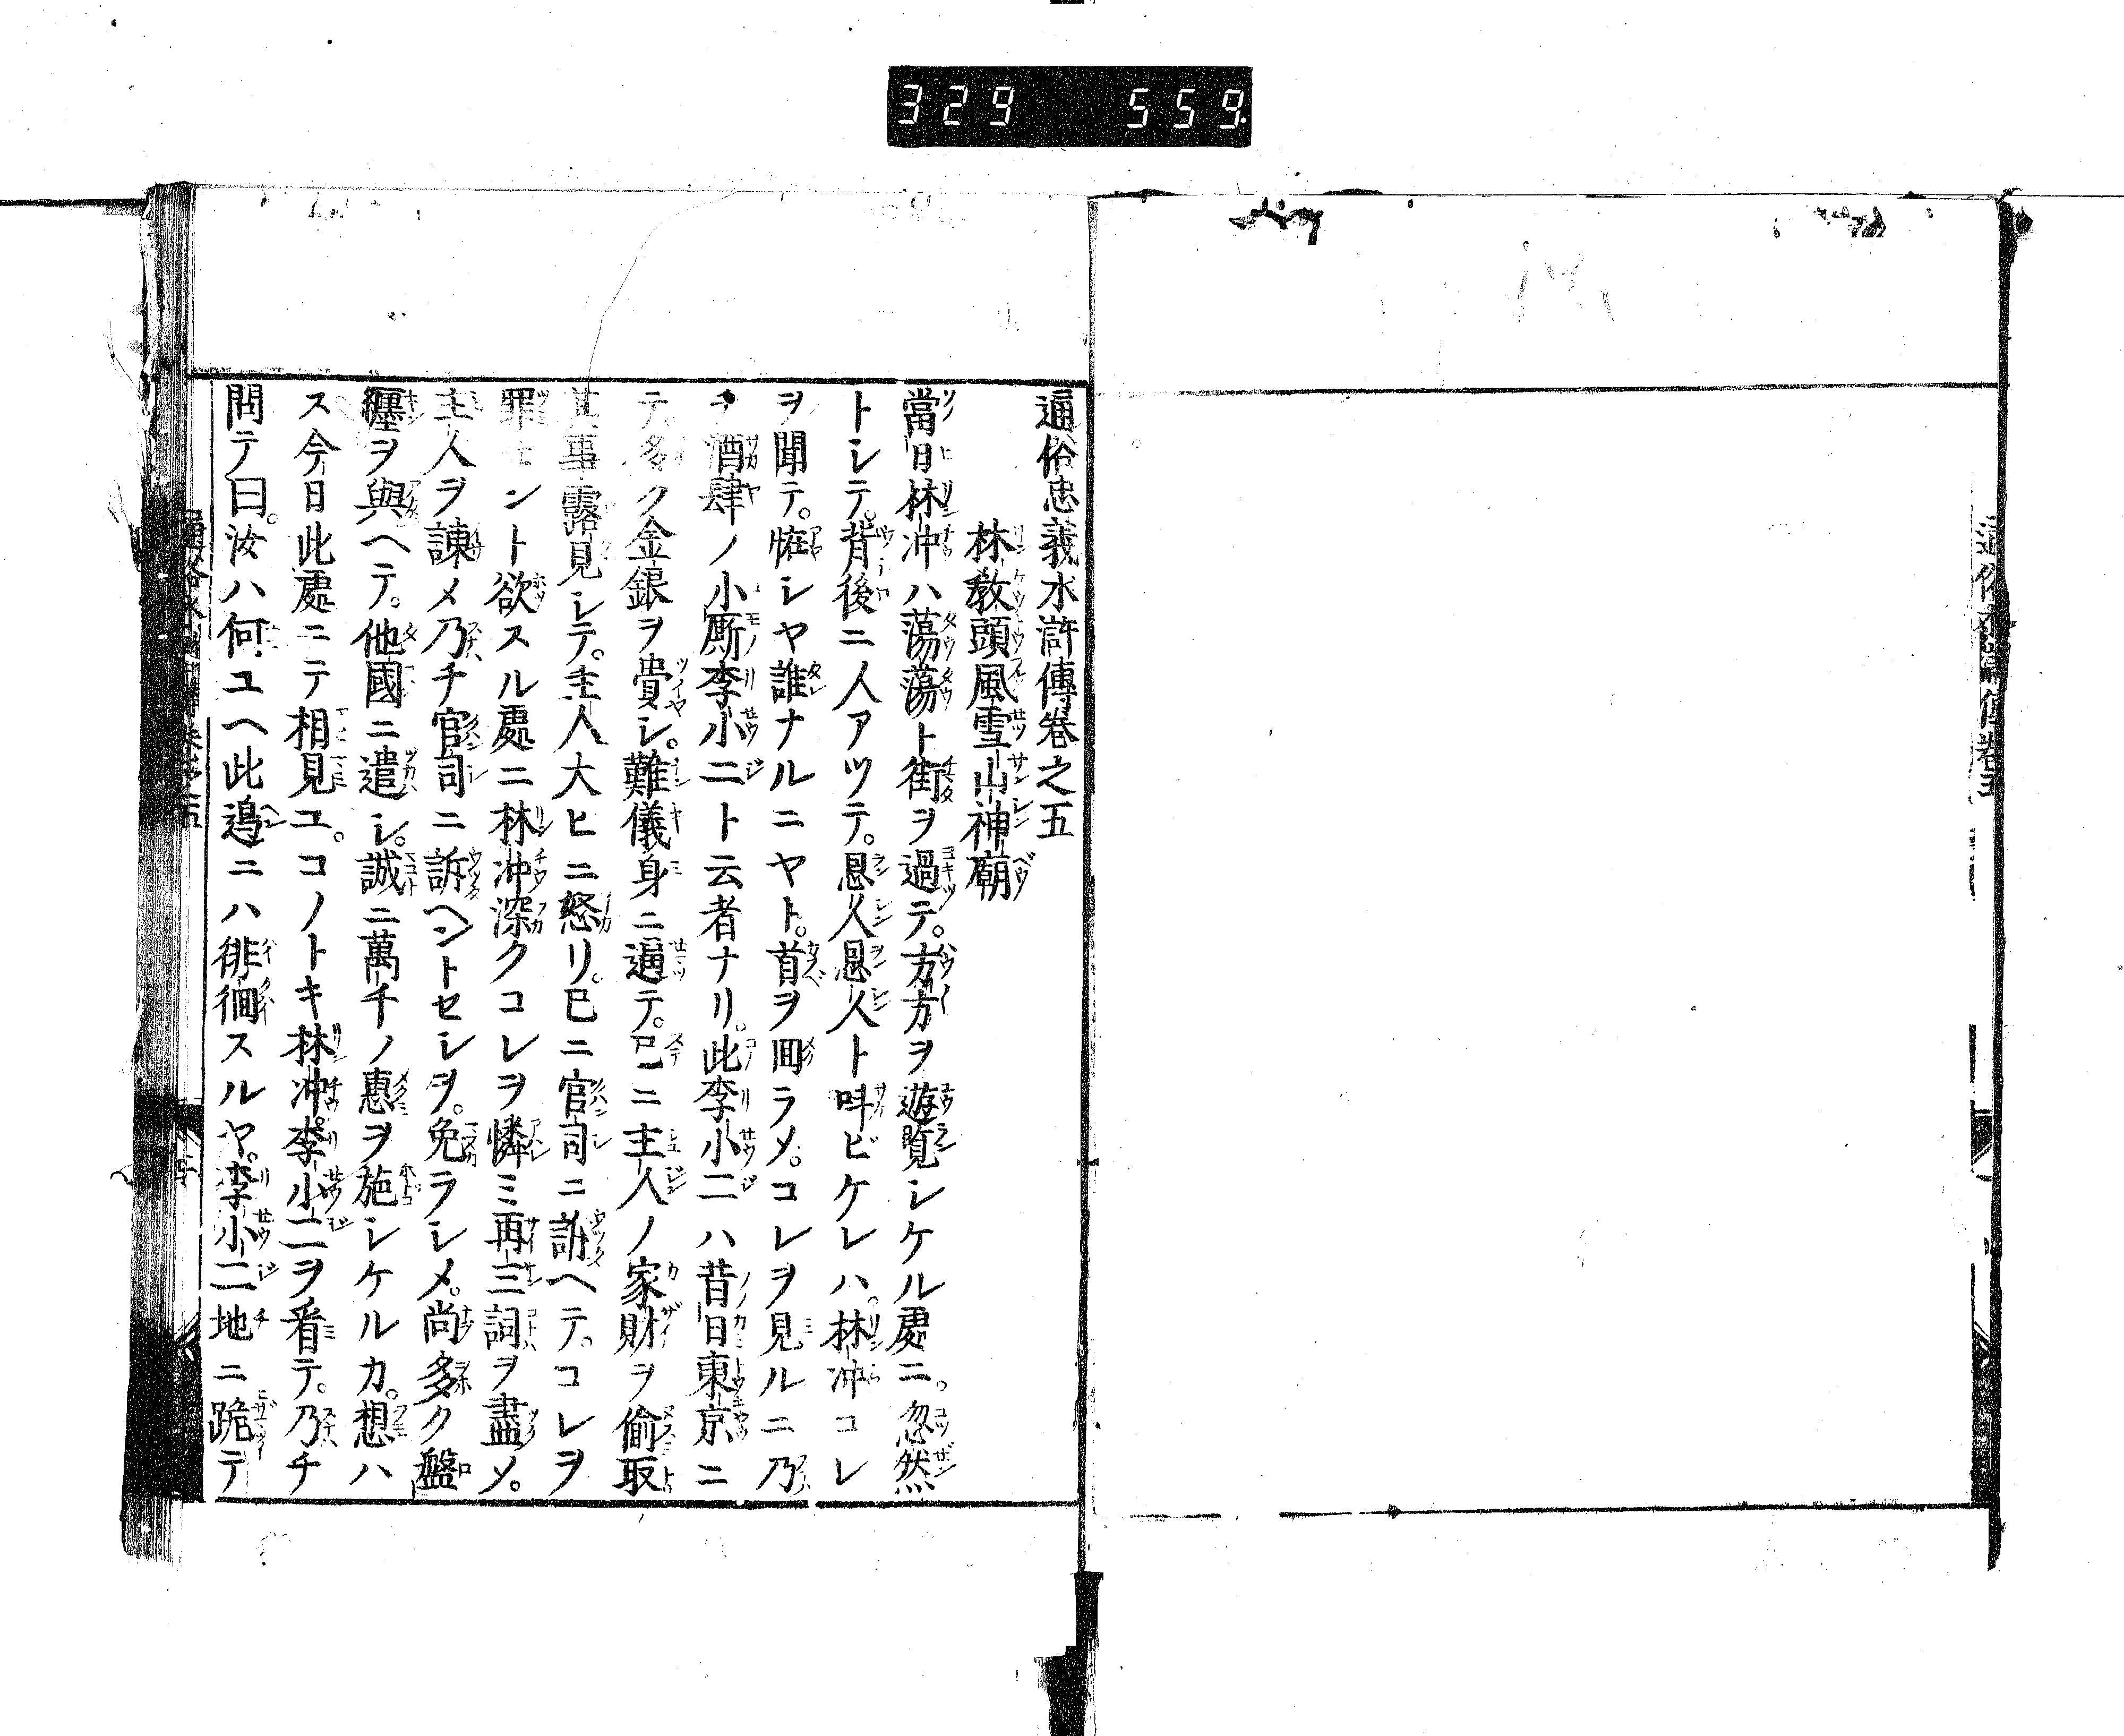 329 559
通俗忠義水滸傳卷之五
林教頭風雪山神廟
當日林冲ハ蕩蕩ト街ヲ過テ。方方ヲ遊覽シケル處ニ。忽然
トシテ。背後ニ人アツテ。恩人恩人ト呌ビケレハ。林冲コレ
ヲ聞テ。恠シヤ誰ナルニヤト。首ヲ囬ラメ。コレヲ見ルニ乃
チ酒肆ノ小厮李小二ト云者ナリ。此李小二ハ昔日東京ニ
テ。多ク金銀ヲ費シ。難儀身ニ逼テ。已ニ主人ノ家財ヲ偷取
其事露見シテ。主人大ヒニ怒リ。已ニ官司ニ訴ヘテ。コレヲ
罪セント欲スル處ニ林冲深クコレヲ憐ミ再三詞ヲ盡メ。
主人ヲ諫メ乃チ官司ニ訴ヘントセシヲ。免ラシメ。尚多ク盤
纏ヲ與ヘテ。他國ニ遣シ。誠ニ萬千ノ惠ヲ施シケルカ。想ハ
ス今日此處ニテ相見ユ。コノトキ林冲李小二ヲ看テ。乃チ
問テ曰。汝ハ何ユヘ此邉ニハ徘徊スルヤ。李小二地ニ跪テ